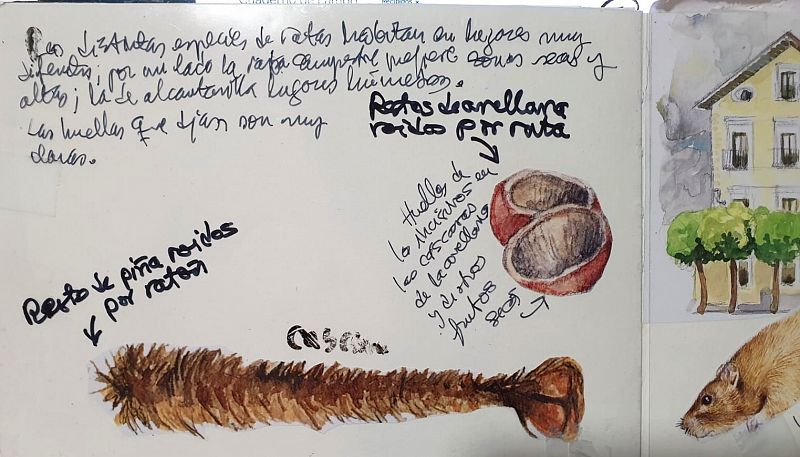 Cuaderno de campo
Las distintas especies de ratas habitan en lugares muy
diferentes; por un lado la rata campestre prefiere zonas secas y
altas; la de alcantarilla lugares húmedos.
Las huellas que dejan son muy
claras.
Restos de avellana
roidos por rata
Huellas de
los incisivos en
las cáscaras
de la avellana
y de otros
frutos
secos
Resto de piña roidos
por ratón